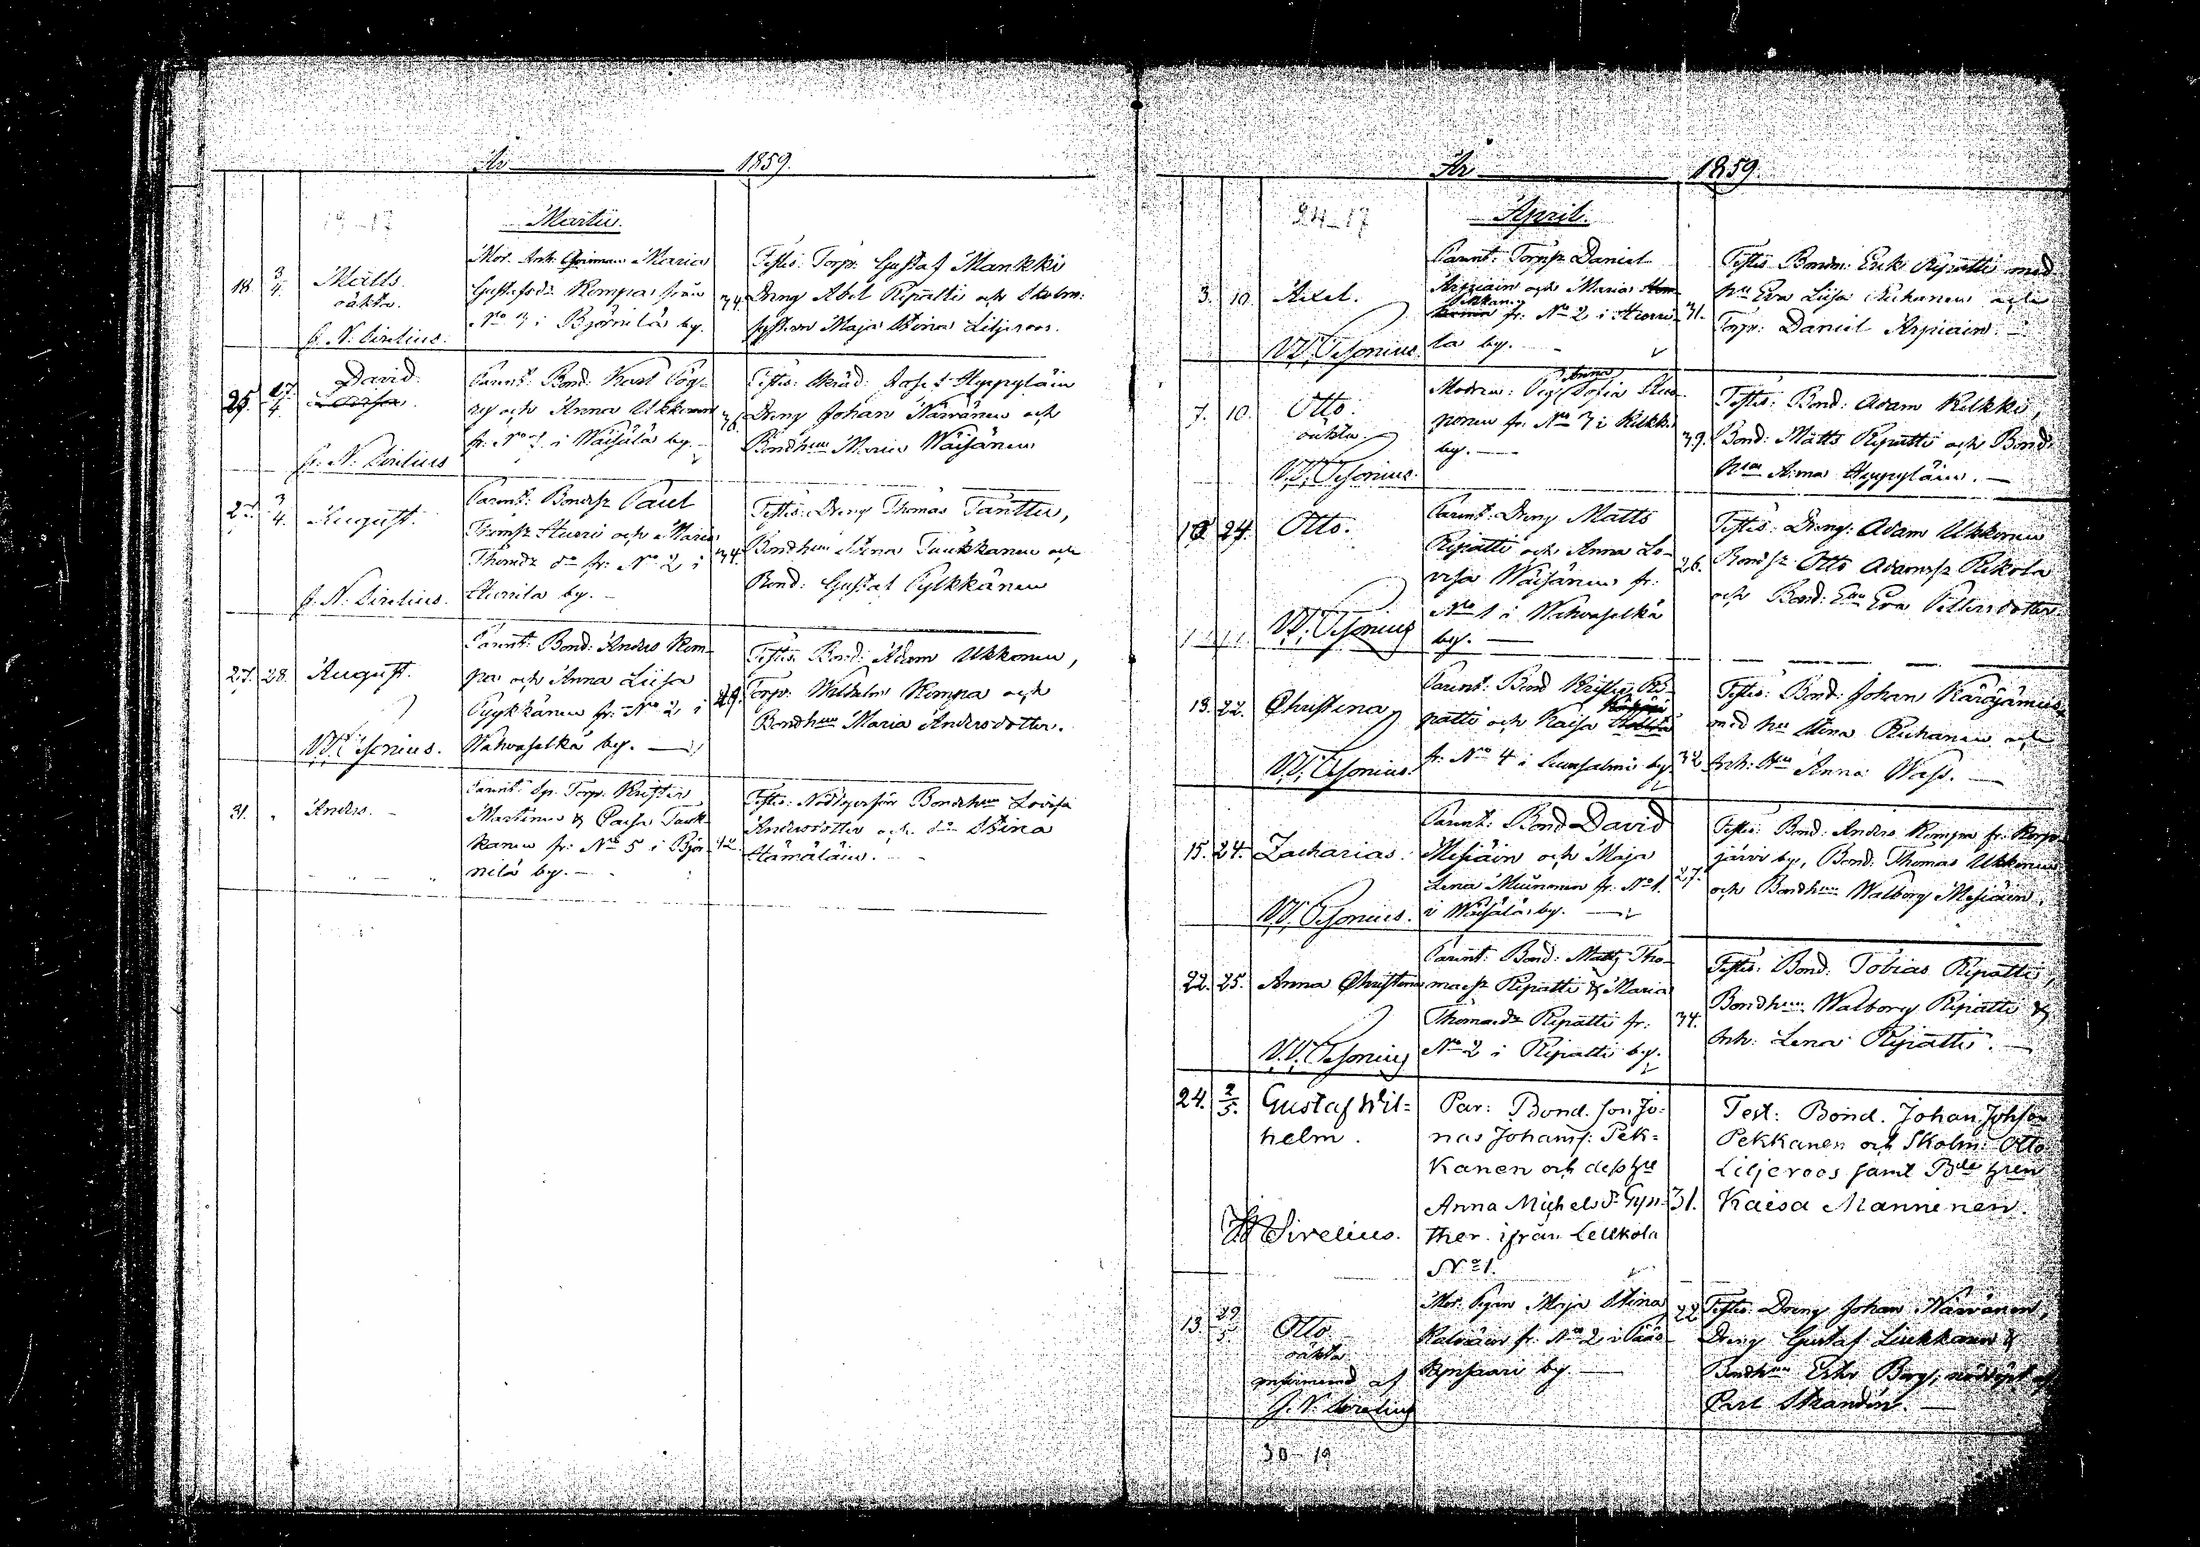 År 1859.
19-17
Martii.
18. 3/4. Matts
oäkta.
J. N. Sirelius.
Mor. Inh. Maria
Gustafsdr Kempas från
No 3 i Björnilä by.
34.
Testes: Torp: Gustaf Mankki
Dreng Abel Ripatti och Skolm:
hustrun Maja Stina Liljeroos.
25. 17/4. David
J. N. Sirelius
Parent: Bond: Karl Pög-
ny och Anna Ukkonen
fr: No 1 i Wäisälä by.
36.
Testes: Hyppyläin
Dreng Johan Närvänen och
Bondhun Maria Wäisänen
27. 3/4. August.
J. N. Sirelius.
Parent: Bondsr Paul
Thomsr Huuri och Maria
Thomdr do fr: No 2 i
Hurrila by.
34.
Testes: Dreng Thomas Tanttu,
Bondhun Stina Tuukkanen och
Bond: Gustaf Pylkkänen
27. 28. August.
W. Pesonius.
Parent: Bond: Anders Kem-
pa och Anna Liisa
Pyykkänen fr: No 2 i
Wahvaselkä by.
29.
Testes: Bond: Adam Ukkonen,
Torp: Wilhelm Kempa och
Bondhun Maria Andersdotter.
31. Anders.
Parent: Sp. Torp: Krister
Martinen & Caisa Tuuk-
kanen fr: No 5 i Björ-
nilä by.
42.
Testes: Nöddöpserskan Bondehun Lovisa
Andersdotter och do Stina
Hämäläin.
År 1859.
24-17
April.
3. 10. Axel.
W. Pesonius.
Parent: Torpsr Daniel
Ärpiäin och Maria
fr: No 2 i Hurri-
la by.
31.
Testes Bondn: Erik Ripatti med
hu Eva Liisa Rukanen och
Torp: Daniel Ärpiäin.
7. 10. Otto.
oäkta
W. Pesonius.
Modren: Pig: Anna Sofia
ponen fr: No 3 i Kilkki
by.
39.
Testes: Bond: Adam Kilkki,
Bond: Matts Ripatti och Bond
hun Anna Hyppyläin.
10 24. Otto.
W. Pesonius
Parent: Dreng Matts
Ripatti och Anna Lo-
visa Wäisänen fr:
No 1 i Wahvaselkä
by.
26.
Testes: Dreng: Adam Ukkonen
Bondsr Otto Adamsr Rikola
och Bond: Eva Pettersdotter.
13. 22. Christina
W. Pesonius.
Parent: Bond Krister Ri-
patti och Kaisa
fr: No 4 i Suursalmi by.
32
Testes: Bond: Johan Käröjämies
med hu Stina Rukanen och
Inh: Hu Anna Wass.
15. 24. Zacharias.
W. Pesonius.
Parent: Bond David
Mesiäin och Maja
Lena Muunonen fr: No 1.
i Wäisälä by.
27.
Testes: Bond: Anders Kempa fr: Korpi-
järvi by, Bond: Thomas Ukkonen
och Bondhun Walborg Mesiäin.
22. 25. Anna Christina
W. Pesonius
Parent: Bond: Matts Tho-
masr Ripatti & Maria
Thomasdr Ripatti fr:
No 2 i Ripatti by.
34.
Testes: Bond: Tobias Ripatti,
Bondhun Walborg Ripatti &
Inh: Lena Ripatti.
24. 2/5. Gustaf Wil=
helm.
Sirelius.
Par: Bond. son Jo:
nas Johans: Pek=
kanen och dess hu
Anna Michelsdr Gyn-
ther ifrån Lellkola
No 1.
31.
Test: Bond. Johan Johsson
Pekkanen och Skolm: Otto
Liljeroos samt Bde hren
Kaisa Manninen.
13. 29/5 Otto
oäkta
af
J. N. Sirelius
Mor. Pigan Maja Stina
Ratiäin fr: No 2 i Pää-
kynsaari by.
22.
Testes: Dreng Johan Närvänen,
Dreng Gustaf Liukkonen &
Bondhun Berg, nöddöpt af
Carl Strandin.
30-19